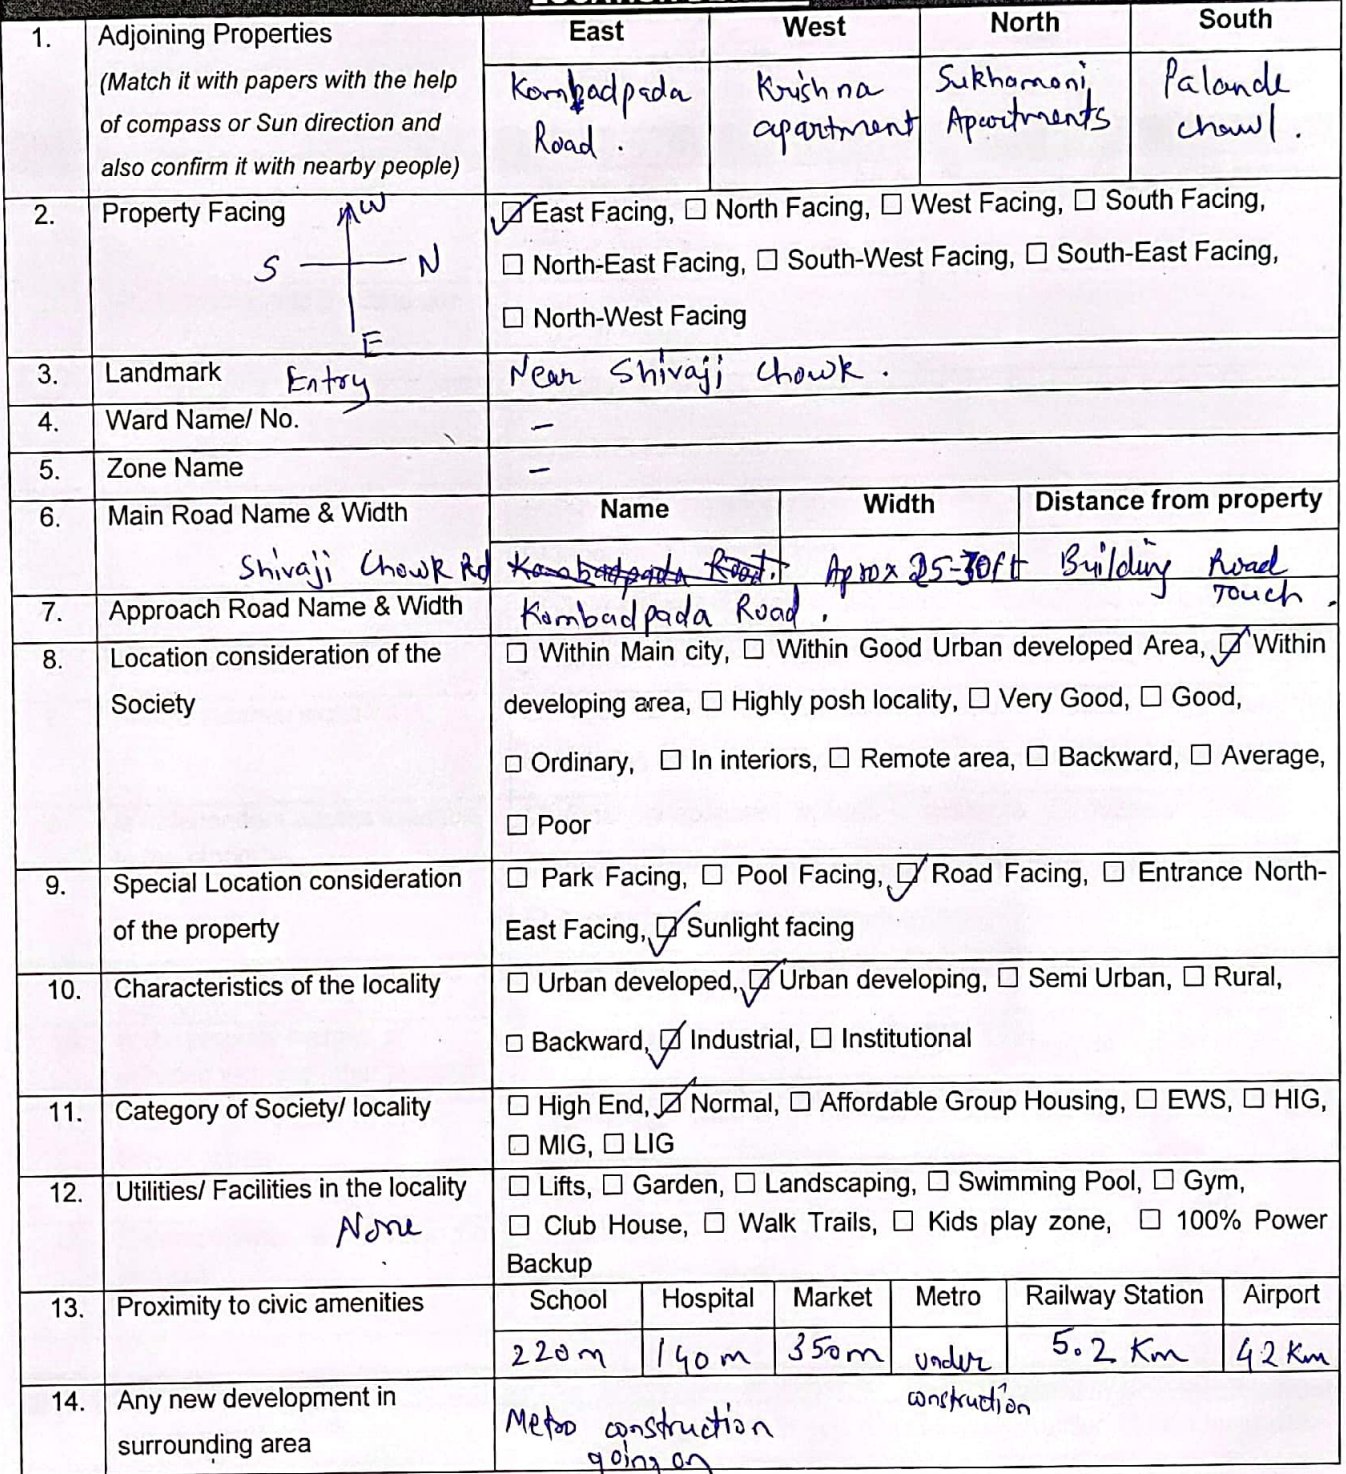 1. Adjoining Properties East West North South
(Match it with papers with the help
of compass or Sun direction and
also confirm it with nearby people)
Kombadpada Road .
Krishna apartment
Sukhamani Apartments
Palande chawl .
2. Property Facing
W
S N
E
Entry
☑ East Facing, ☐ North Facing, ☐ West Facing, ☐ South Facing,
☐ North-East Facing, ☐ South-West Facing, ☐ South-East Facing,
☐ North-West Facing
3. Landmark Near Shivaji Chowk .
4. Ward Name/ No. –
5. Zone Name –
6. Main Road Name & Width Name Width Distance from property
Shivaji Chowk Rd Kombadpada Road. Aprox 25-30ft Building Road Touch .
7. Approach Road Name & Width Kombadpada Road .
8. Location consideration of the
Society
☐ Within Main city, ☐ Within Good Urban developed Area, ☑ Within
developing area, ☐ Highly posh locality, ☐ Very Good, ☐ Good,
☐ Ordinary, ☐ In interiors, ☐ Remote area, ☐ Backward, ☐ Average,
☐ Poor
9. Special Location consideration
of the property
☐ Park Facing, ☐ Pool Facing, ☑ Road Facing, ☐ Entrance North-
East Facing, ☑ Sunlight facing
10. Characteristics of the locality
☐ Urban developed, ☑ Urban developing, ☐ Semi Urban, ☐ Rural,
☐ Backward, ☑ Industrial, ☐ Institutional
11. Category of Society/ locality
☐ High End, ☑ Normal, ☐ Affordable Group Housing, ☐ EWS, ☐ HIG,
☐ MIG, ☐ LIG
12. Utilities/ Facilities in the locality
None
☐ Lifts, ☐ Garden, ☐ Landscaping, ☐ Swimming Pool, ☐ Gym,
☐ Club House, ☐ Walk Trails, ☐ Kids play zone, ☐ 100% Power
Backup
13. Proximity to civic amenities School Hospital Market Metro Railway Station Airport
220m 140m 350m under construction 5.2 Km 42 Km
14. Any new development in
surrounding area
Metro construction
going on